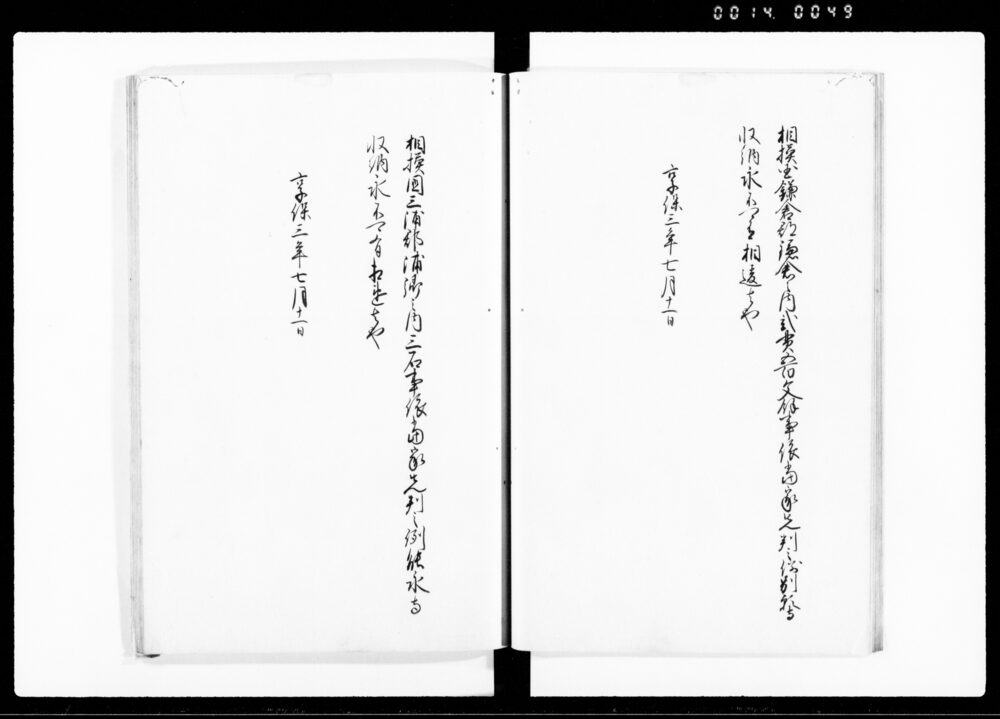 0014 0049
相摸国鎌倉郡鎌倉之内弐貫五百文餘事依当家先判之例別願寺
収納永不可有相違者也
享保三年七月十一日
相摸國三浦郡浦郷之内三石事依当家先判之例能永寺
収納永不可有相違者也
享保三年七月十一日